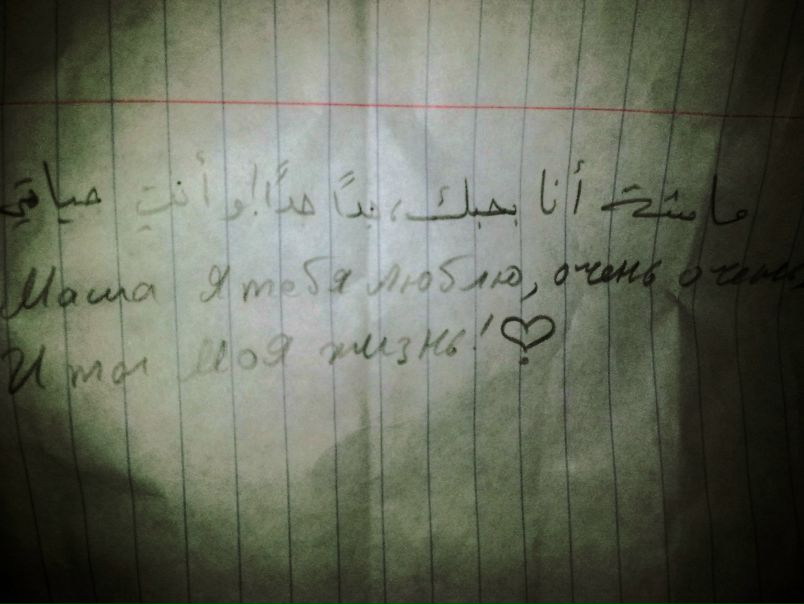 ماشة أنا بحبك، جداً جداً! و أنتِ حياتي
Маша Я тебя люблю, очень очень,
И ты Моя жизнь!